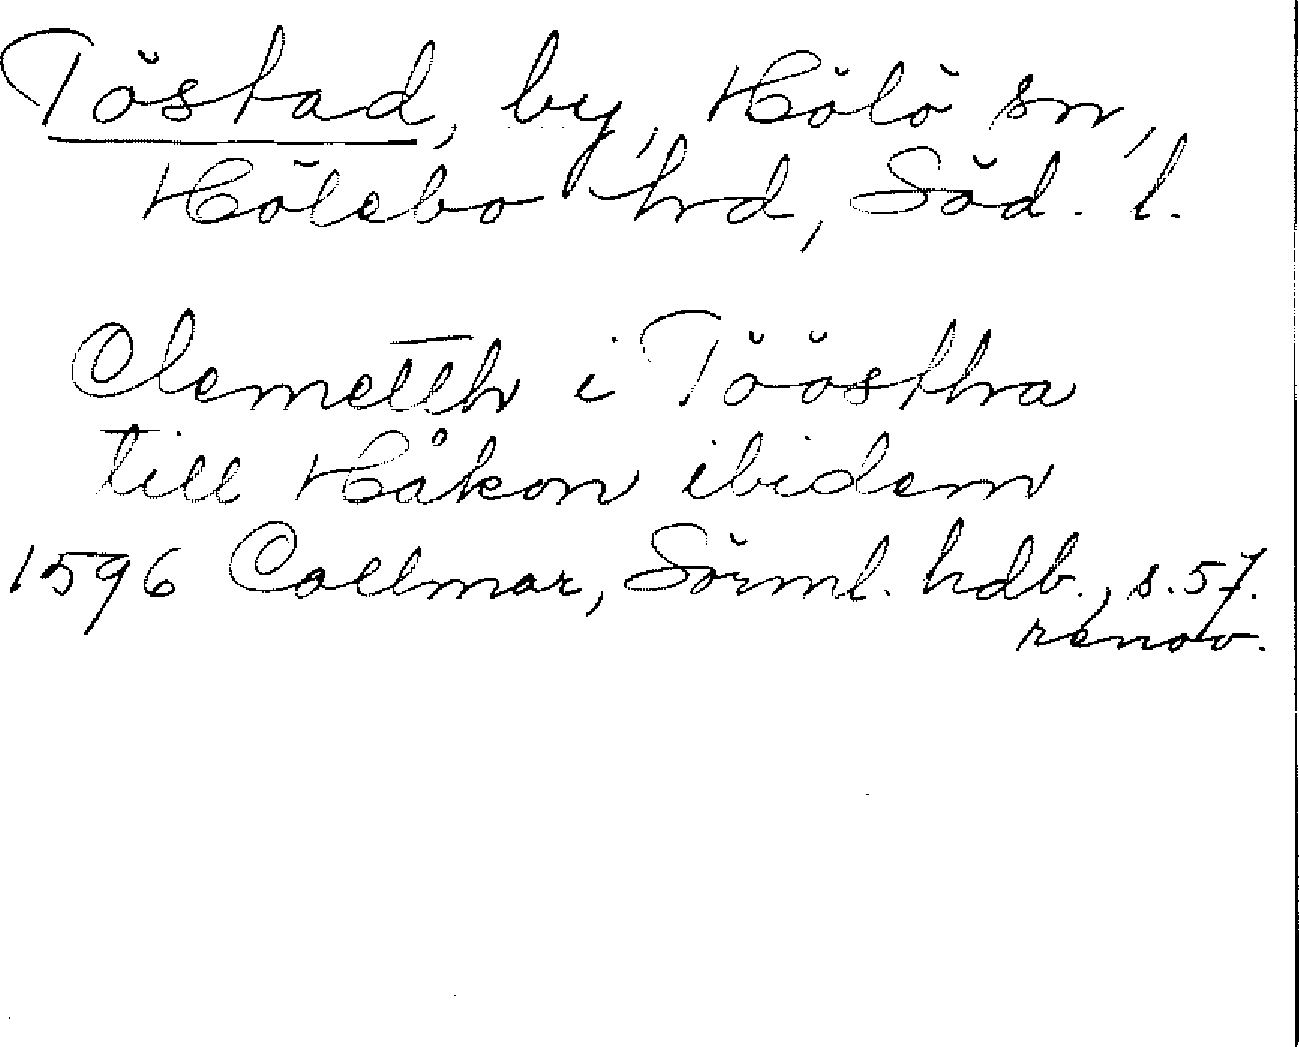 Töstad, by, Hölö sn,
Hölebo hrd, Söd. l.
Clemetth i Tööstha
till Håkon ibidem
1596 Collmar, Sörml. hdb., s. 57.
renov.